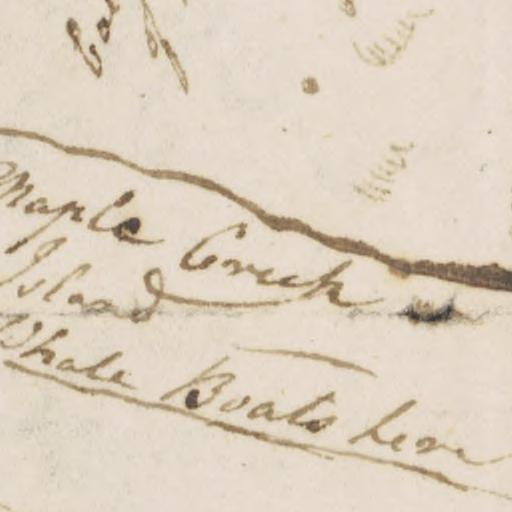 Maple Creek
Island
Whale Boats here